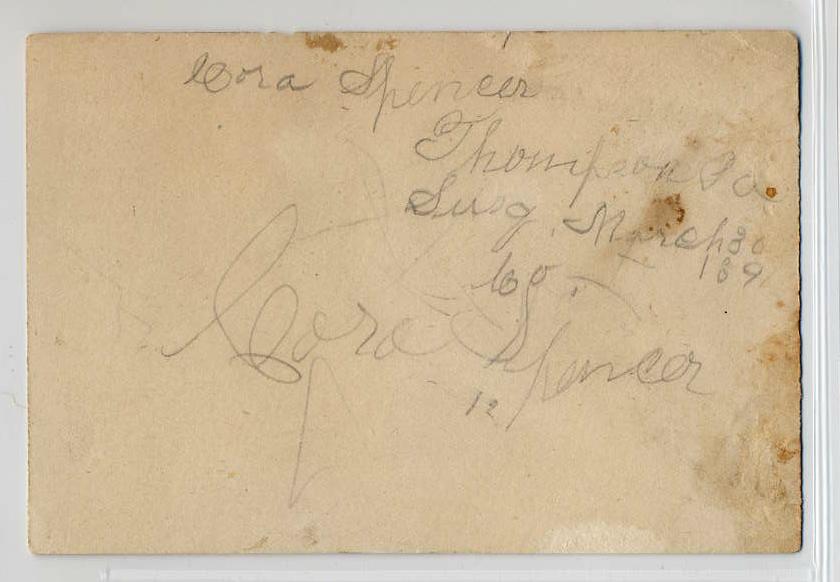 Cora Spencer
Thompson Pa
Susq. March 30
Co. 189
Cora Spencer
12